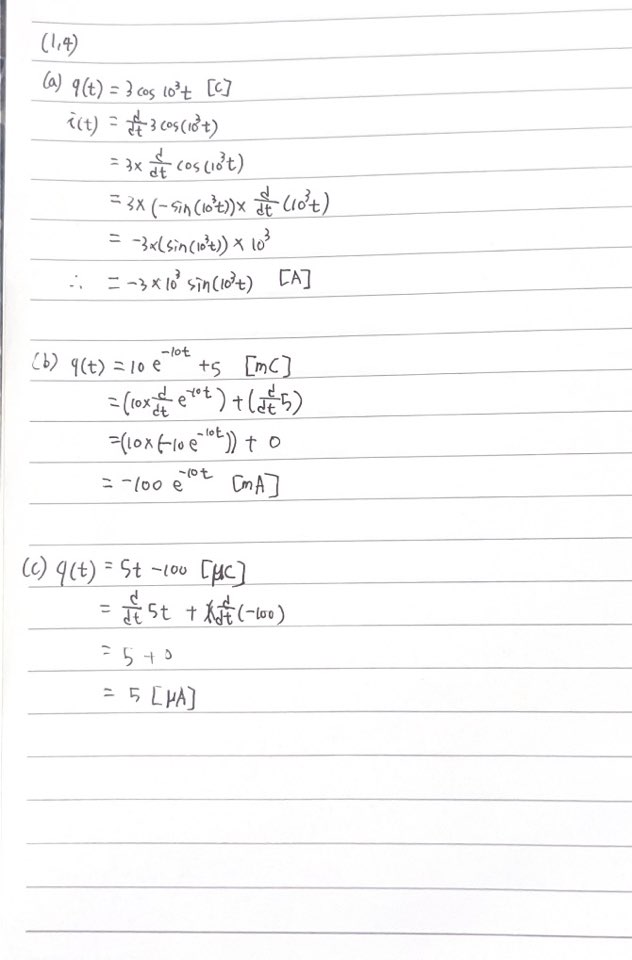 (1,4)
(a) q(t) = 3 cos 10³t [C]
i(t) = d/dt 3 cos(10³t)
= 3× d/dt cos(10³t)
= 3×(-sin(10³t))× d/dt (10³t)
= -3×(sin(10³t)) × 10³
∴ = -3×10³ sin(10³t) [A]
(b) q(t) = 10 e^-10t +5 [mC]
= (10× d/dt e^-10t) + (d/dt 5)
= (10×(-10 e^-10t)) + 0
= -100 e^-10t [mA]
(c) q(t) = 5t -100 [μC]
= d/dt 5t + d/dt (-100)
= 5 + 0
= 5 [μA]